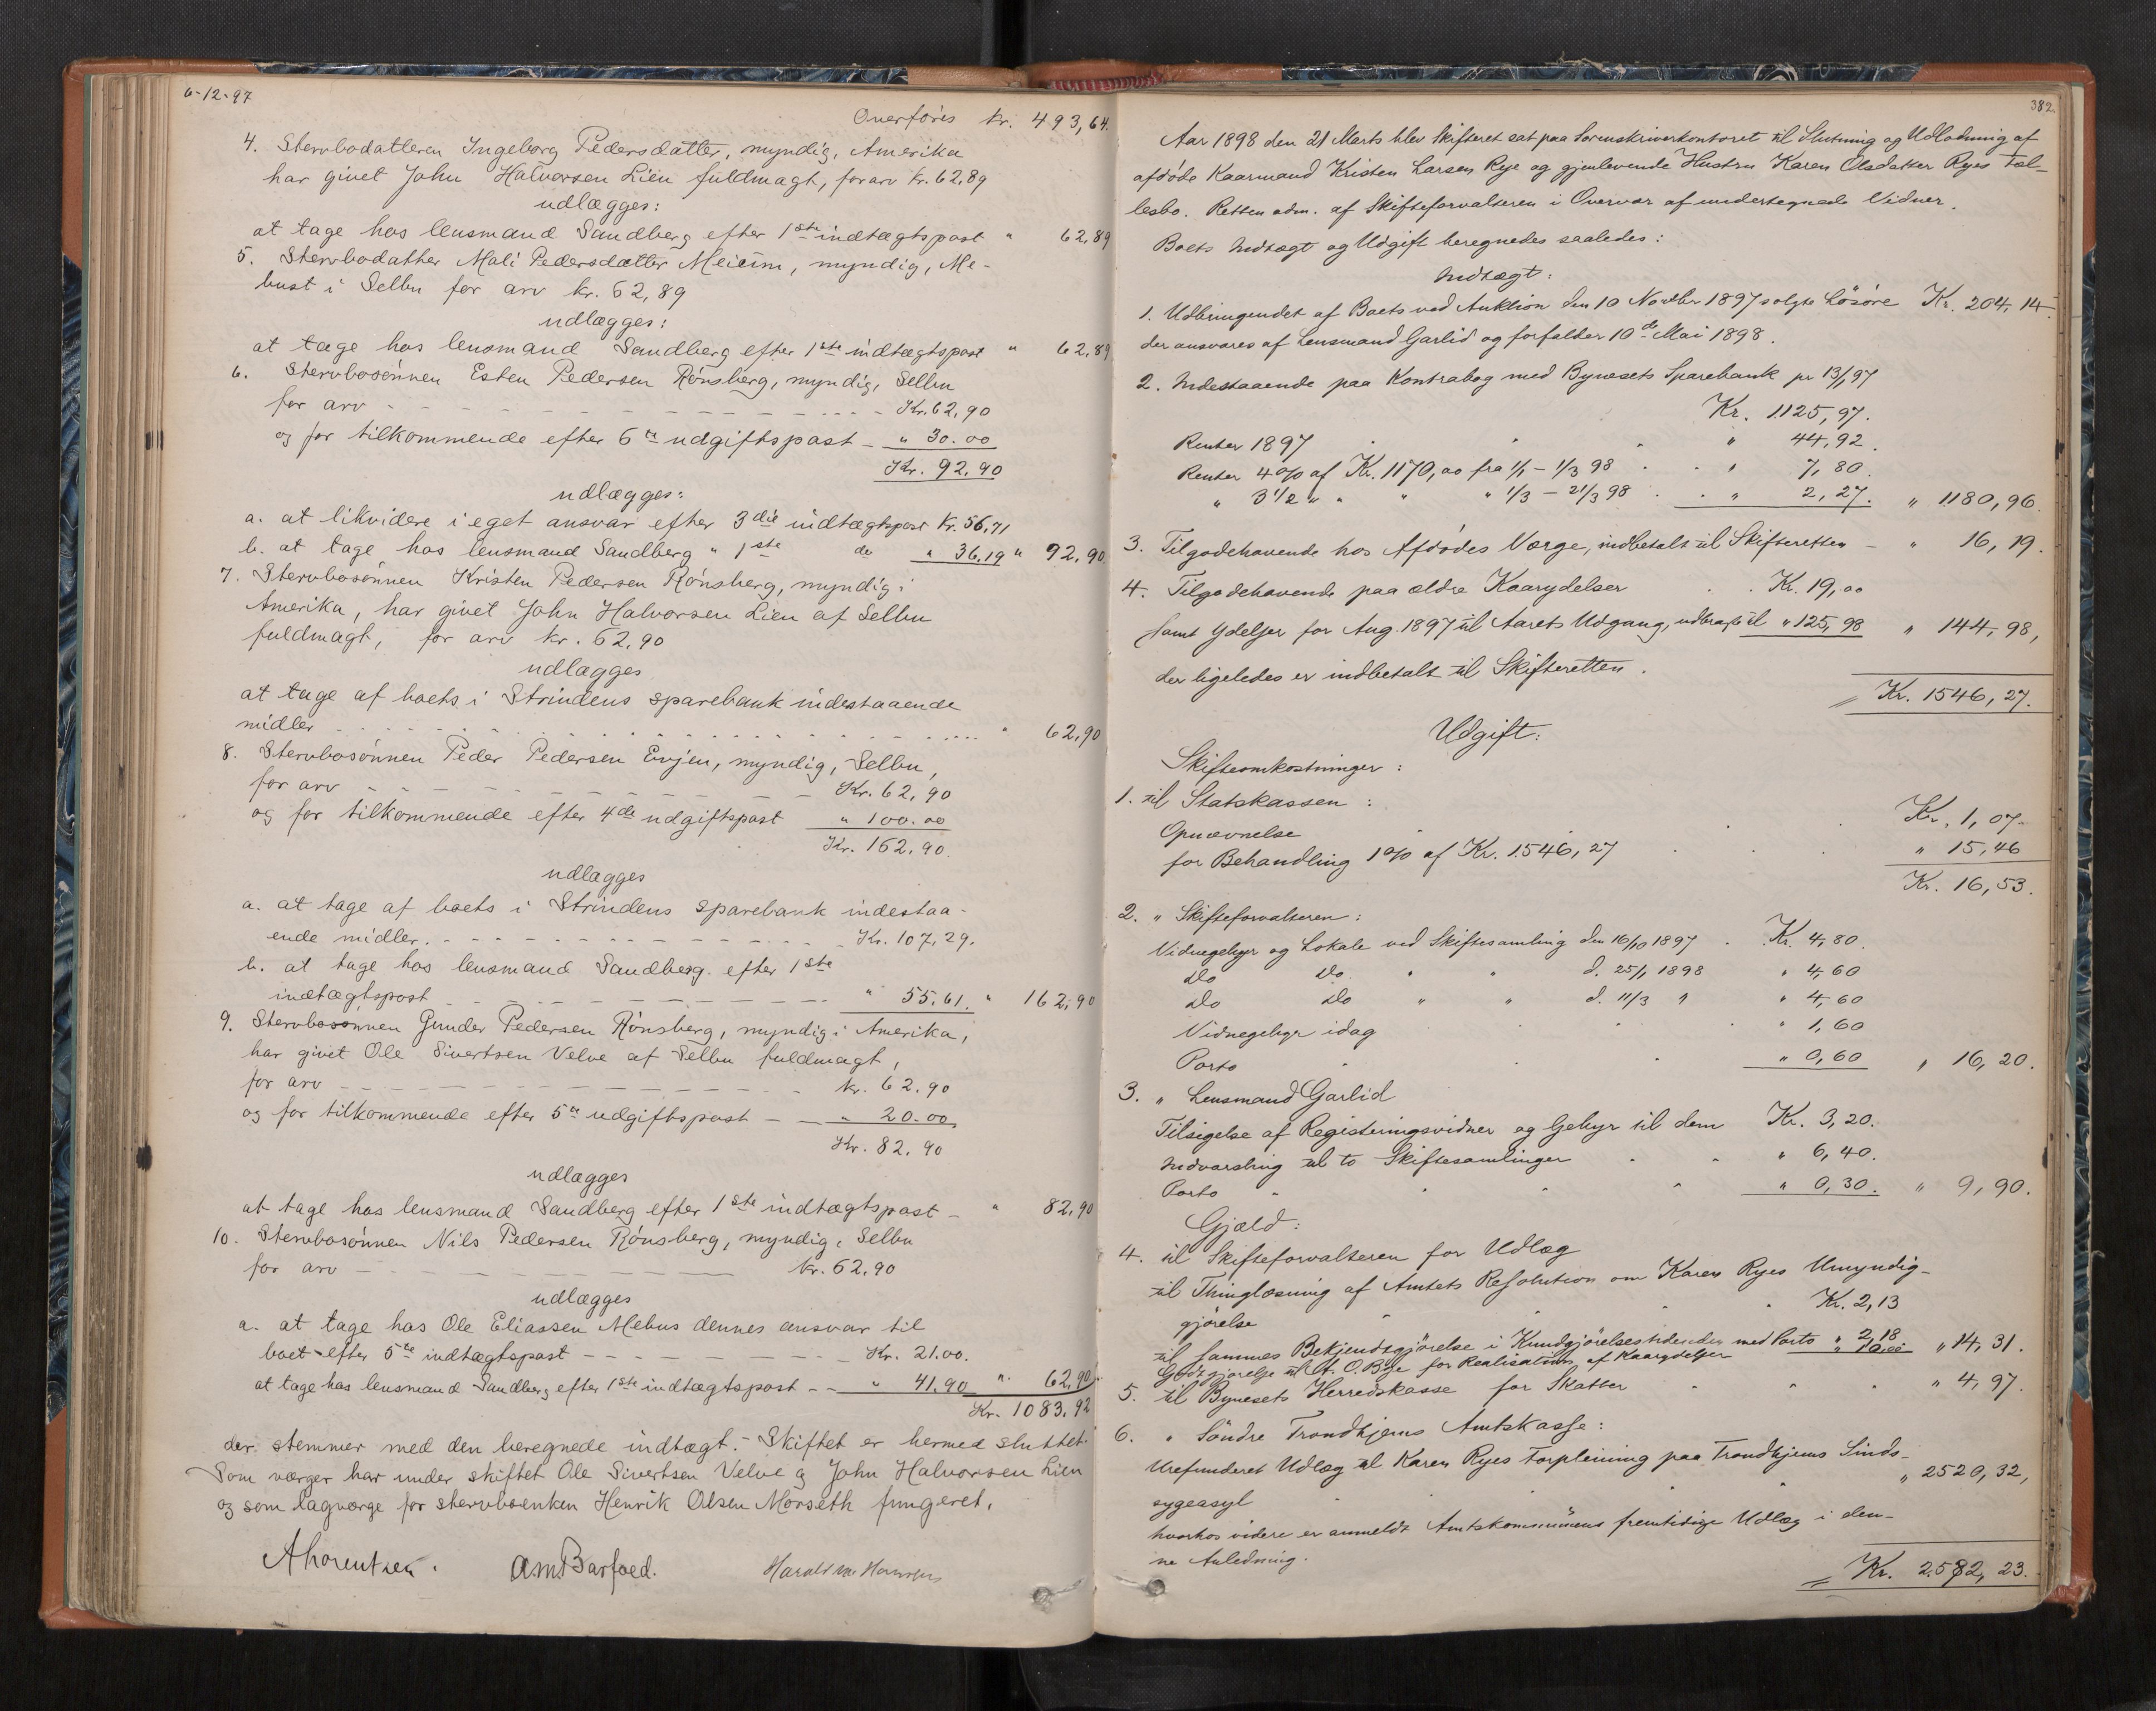 6-12-97
Overføres Kr. 493,64.
4. Stervbodatteren Ingeborg Pedersdatter, myndig, Amerika
har givet John Halvorsen Lien fuldmagt, for arv Kr. 62,89
udlægges:
at tage hos lensmand Sandberg efter 1ste indtægtspost " 62,89
5. Stervbodatter Mali Pedersdatter Meicim, myndig, Me-
bust i Selbu for arv kr. 62,89
udlægges:
at tage hos lensmand Sandberg efter 1ste indtægtspost " 62,89
6. Stervbosønnen Esten Pedersen Rønsberg, myndig, Selbu
for arv - - - Kr. 62,90
og for tilkommende efter 6te udgiftspost - " 30.00
Kr. 92.90
udlægges:
a. at likvidere i eget ansvar efter 3die indtægtspost Kr. 56,71
b. at tage hos lensmand Sandberg " 1ste do " 36.19 " 92,90.
7. Stervbosønnen Kristen Pedersen Rønsberg, myndig i
Amerika, har givet John Halvorsen Lien af Selbu
fuldmagt, for arv kr. 62,90
udlægges
at tage af boets i Strindens sparebank indestaaende
midler " 62,90
8. Stervbosønnen Peder Pedersen Evjen, myndig, Selbu,
for arv - - - Kr. 62,90
og for tilkommende efter 4de udgiftspost " 100.00
Kr. 162,90.
udlægges
a. at tage af boets i Strindens sparebank indestaa-
ende midler. - - - Kr. 107,29.
b. at tage hos lensmand Sandberg efter 1ste
indtægtspost - - - " 55.61. " 162,90
9. Stervbosønnen Gunder Pedersen Rønsberg, myndig i Amerika,
har givet Ole Sivertsen Velve af Selbu fuldmagt,
for arv - - - kr. 62.90
og for tilkommende efter 5te udgiftspost - " 20.00,
Kr. 82.90
udlægges
at tage hos lensmand Sandberg efter 1ste indtægtspost - " 82,90
10. Stervbosønnen Nils Pedersen Rønsberg, myndig, Selbu
for arv - - - kr. 62,90
udlægges
a. at tage hos Ole Eliassen Mebus dennes ansvar til
boet efter 5te indtægtspost - - - Kr. 21.00.
at tage hos lensmand Sandberg efter 1ste indtægtspost - - " 41,90 " 62,90
Kr. 1083.92
der stemmer med den beregnede indtægt. - Skiftet er hermed sluttet.
Som værger har under skiftet Ole Sivertsen Velve og John Halvorsen Lien
og som lagværge for stervboenken Henrik Olsen Morseth fungeret.
A Lorentzen. AM Barfoed.
382.
Aar 1898 den 21 Marts blev Skifteret sat paa Sorenskriverkontoret til Slutning og Udlodning af
afdøde Kaarmand Kristen Larsen Rye og gjenlevende Hustru Karen Olsdatter Ryes Fæl-
lesbo. Retten adm. af Skifteforvalteren i Overvær af undertegnede Vidner.
Boets Indtægt og Udgift beregnedes saaledes:
Indtægt:
1. Udbringendet af Boets ved Auktion den 10 Novbr 1897 solgte Løsøre Kr. 204,14.
der ansvares af Lensmand Garlid og forfalder 10de Mai 1898.
2. Indestaaende paa Kontrabog med Bynesets Sparebank pr 13/1 97
Kr. 1125,97.
Renter 1897 " 44,92.
Renter 4% af Kr. 1170,00 fra 1/1 - 1/3 98 " 7,80.
" 3 1/2 " " " " 1/3 - 21/3 98 " 2,27. " 1180,96.
3. Tilgodehavende hos Afdødes Værge, indbetalt til Skifteretten - " 16,19.
4. Tilgodehavende paa ældre Kaarydelser Kr. 19,00
samt Ydelser for Aug. 1897 til Aarets Udgang, udbragt til " 125,98 " 144,98,
der ligeledes er indbetalt til Skifteretten.
Kr. 1546,27.
Udgift:
Skifteomkostninger:
1. til Statskassen:
Opnævnelse Kr. 1,07.
for Behandling 1% af Kr. 1546,27 " 15,46
Kr. 16,53.
2. " Skifteforvalteren:
Vidnegebyr og Lokale ved Skiftesamling den 16/10 1897 Kr. 4,80.
Do Do " " d. 25/1 1898 " 4,60
Do Do " " d. 11/3 " " 4,60
Vidnegebyr idag " 1,60
Porto " 0,60 " 16,20.
3. " Lensmand Garlid
Tilsigelse af Registeringsvidner og Gebyr til dem Kr. 3,20.
Indvarsling til to Skiftesamlinger " 6,40.
Porto " 0,30. " 9,90.
Gjæld:
4. til Skifteforvalteren for Udlæg
til Thinglæsning af Amtets Resolution om Karen Ryes Umyndig-
gjørelse Kr. 2,13
til sammes Bekjendtgjørelse i Kundgjørelsestidenden med Porto " 2,18
Godtgjørelse til A. O. Bye for Realisation af Kaarydelser " 10.00 " 14,31.
5. til Bynesets Herredskasse for Skatter " 4,97.
6. " Søndre Trondhjems Amtskasse:
Urefunderet Udlæg til Karen Ryes Forpleining paa Trondhjems Sinds-
sygeasyl " 2520,32,
hvorhos videre er anmeldt Amtskommunens fremtidige Udlæg i den-
ne Anledning.
Kr. 2582,23.